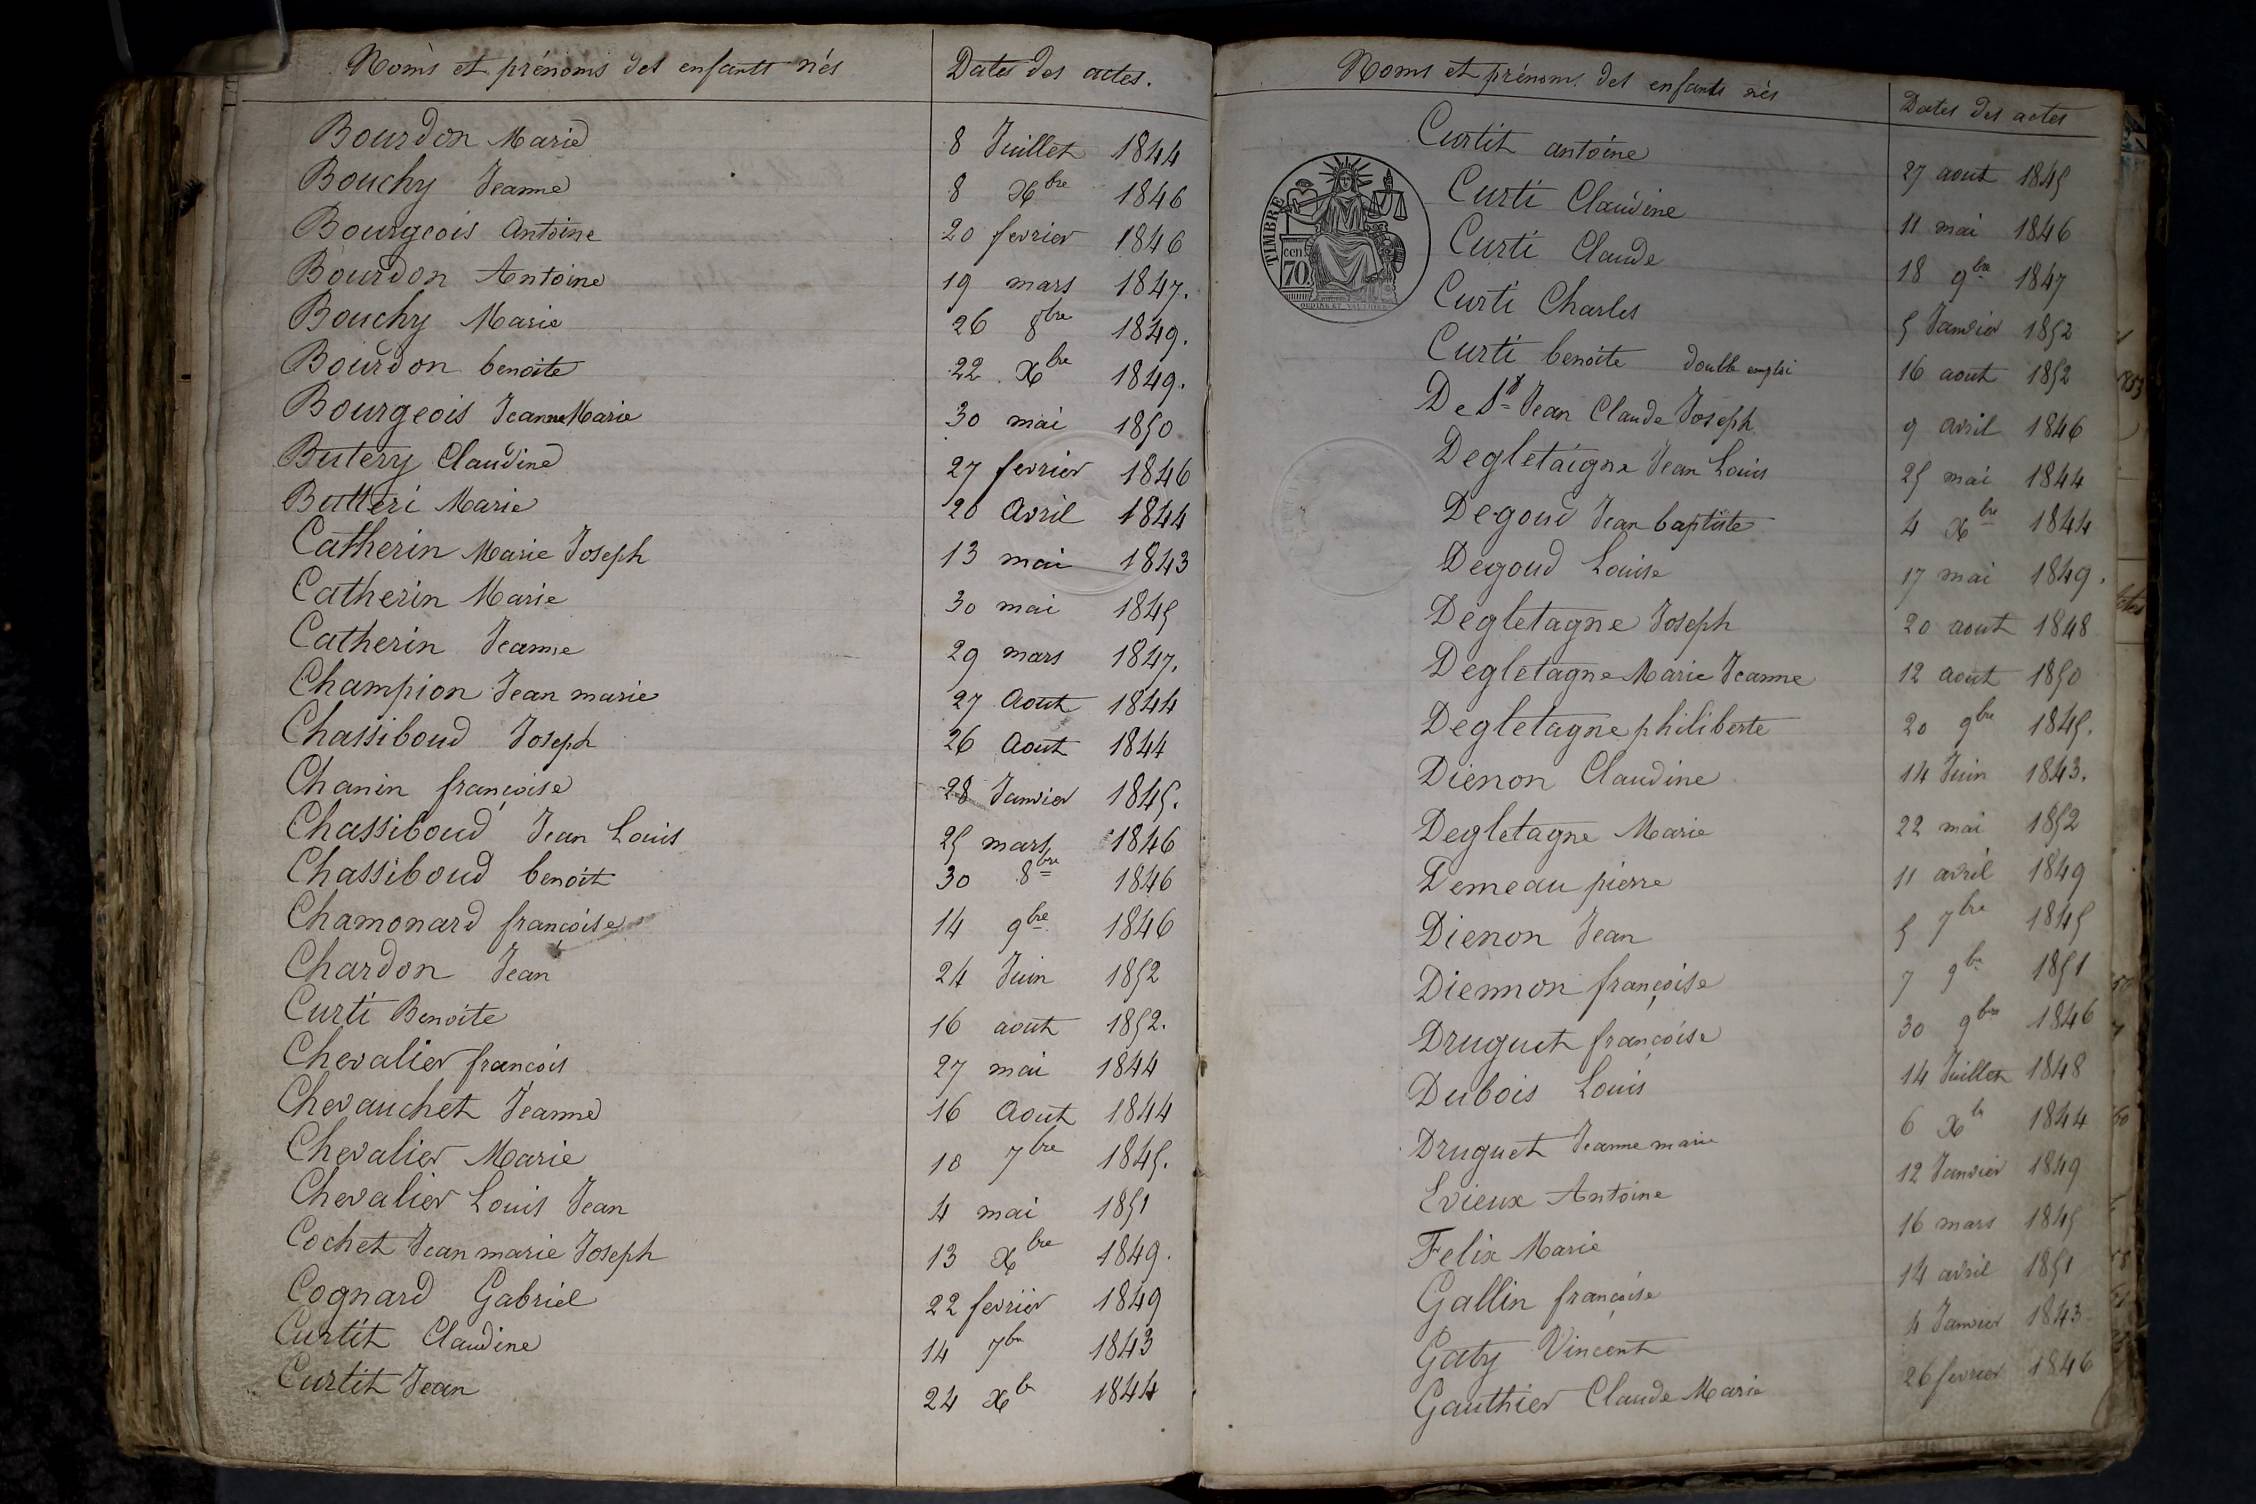 Noms et prénoms des enfants nés Dates des actes.
Bourdon Marie 8 Juillet 1844
Bouchy Jeanne 8 Xbre 1846
Bourgeois Antoine 20 fevrier 1846
Bourdon Antoine 19 mars 1847.
Bouchy Marie 26 8bre 1849.
Bourdon benoite 22 Xbre 1849.
Bourgeois Jeanne Marie 30 mai 1850
Butery Claudine 27 fevrier 1846
Butteri Marie 20 Avril 1844
Catherin Marie Joseph 13 mai 1843
Catherin Marie 30 mai 1845
Catherin Jeanne 29 mars 1847.
Champion Jean marie 27 Aout 1844
Chassiboud Joseph 26 Aout 1844
Chanin françoise 28 Janvier 1845.
Chassiboud Jean Louis 25 mars 1846
Chassiboud benoit 30 8bre 1846
Chamonard françoise 14 9bre 1846
Chardon Jean 24 Juin 1852
Curti Benoite 16 aout 1852.
Chevalier françois 27 mai 1844
Chevauchet Jeanne 16 Aout 1844
Chevalier Marie 10 7bre 1845.
Chevalier Louis Jean 4 mai 1851
Cochet Jean marie Joseph 13 Xbre 1849.
Cognard Gabriel 22 fevrier 1849
Curtit Claudine 14 7bre 1843
Curtit Jean 24 Xbre 1844
Noms et prénoms des enfants nés Dates des actes
TIMBRE
cen.
70
Curtit antoine 27 aout 1845
Curti Claudine 11 mai 1846
Curti Claude 18 9bre 1847
Curti Charles 5 Janvier 1852
Curti benoite double emploi 16 aout 1852
De St Jean Claude Joseph 9 avril 1846
Degletaigne Jean Louis 25 mai 1844
Degoud Jean baptiste 4 Xbre 1844
Degoud Louise 17 mai 1849.
Degletagne Joseph 20 aout 1848
Degletagne Marie Jeanne 12 aout 1850
Degletagne philiberte 20 9bre 1845.
Dienon Claudine 14 Juin 1843.
Degletagne Marie 22 mai 1852
Demeau pierre 11 avril 1849
Dienon Jean 5 7bre 1845
Diennon françoise 7 9bre 1851
Druguet françoise 30 9bre 1846
Dubois Louis 14 Juillet 1848
Druguet Jeanne marie 6 Xbre 1844
Evieux Antoine 12 Janvier 1849
Felix Marie 16 mars 1845
Gallin françoise 14 avril 1851
Gaty Vincent 4 Janvier 1843
Gauthier Claude Marie 26 fevrier 1846